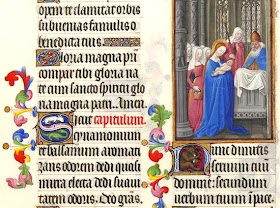 opem te clamitat orbis
subuenias famulis o
benedicta tuis.
Gloria magna patri
compar tibi gloria na
te cum sancto spiritu glo
ria magna patri. Amen
Sicut capitulum.
cynamomum
et balsamum aromati
zans odorem dedi quasi
mirra electa dedi suaui
tatem odoris. Deo grās.
Nunc dimittis
seruum tuum
domine: secundum
uerbum tuum in